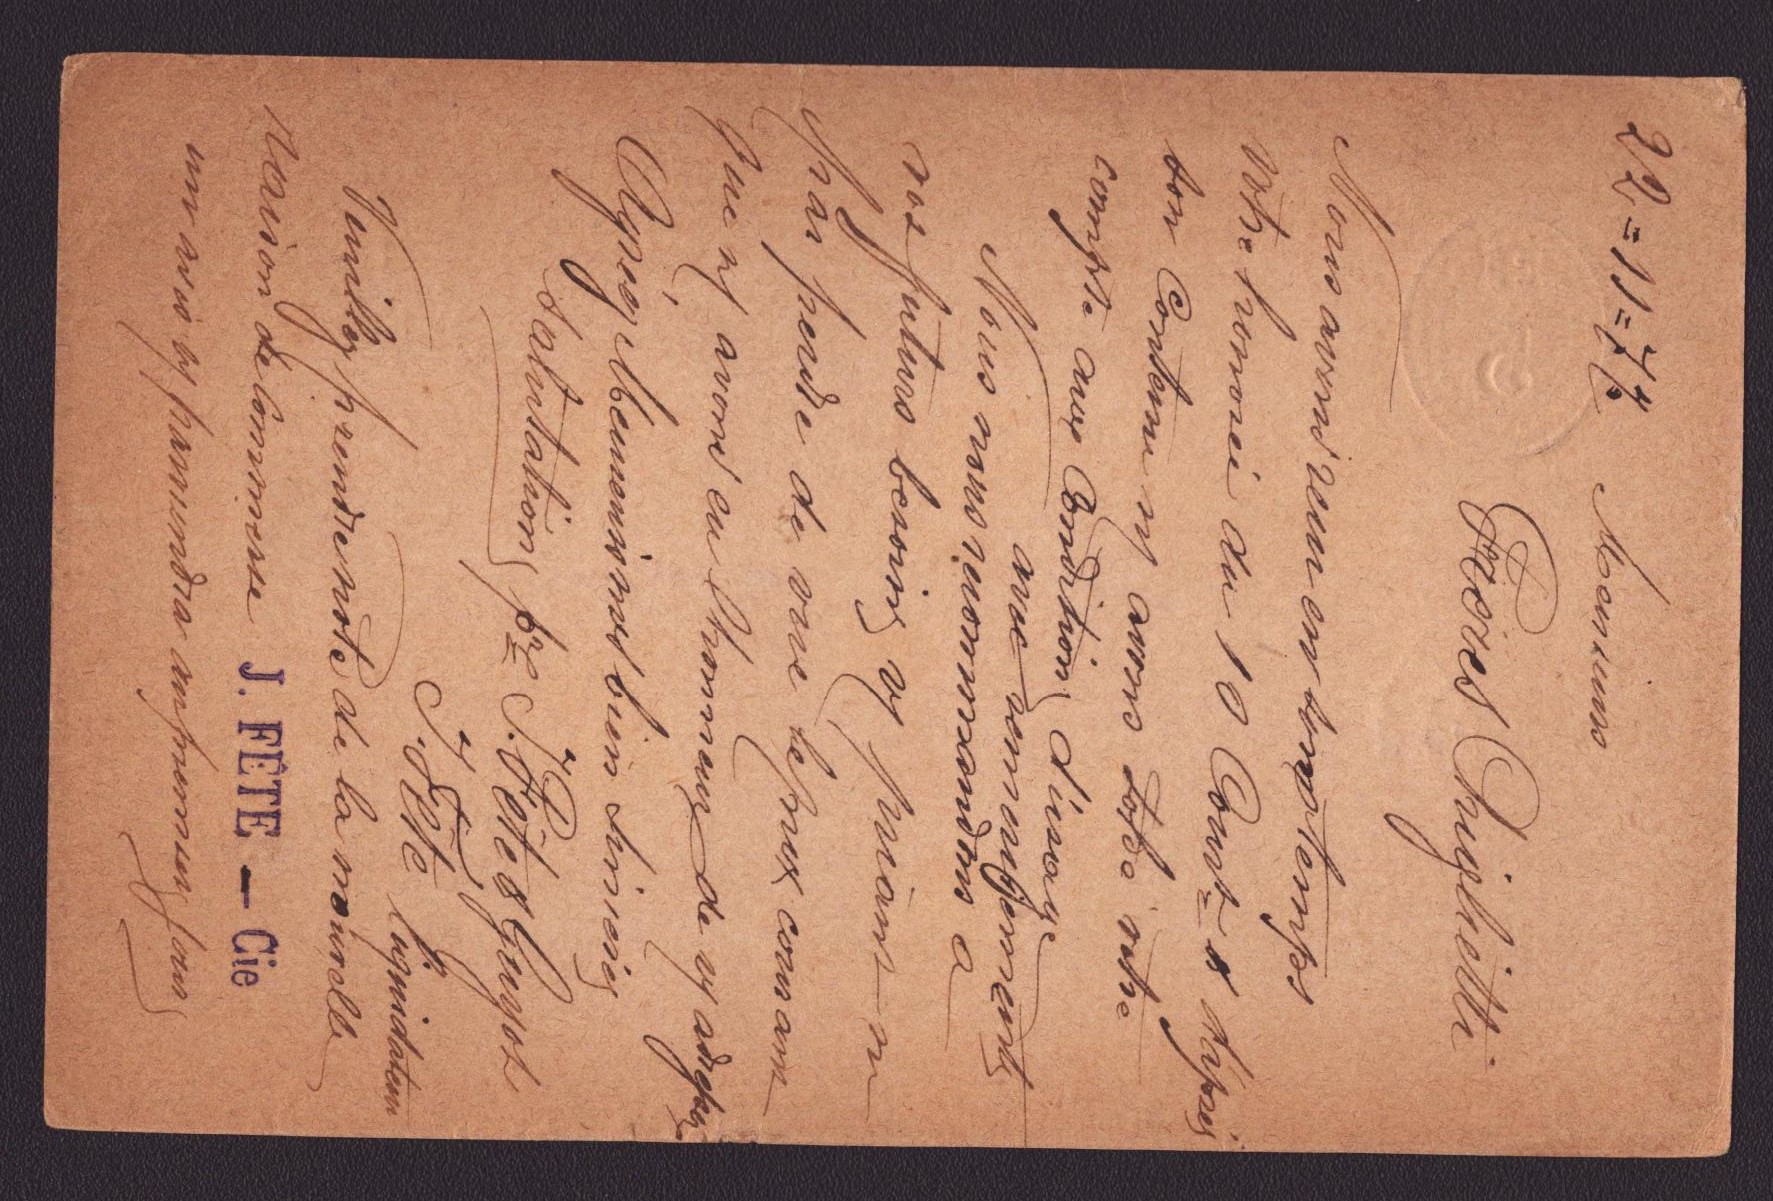 22=11=74
Messieurs
Frères Chighetti
Nous avons reçu en son temps
Votre honoré du 10 Cour=t & Sypris
son Contenu nf avons Porté votre
compte aux Condition d'usage
avec remerciements
Nous nous recommandons a
vos futurs besoins et prions n
pas perdre de vue le prix courant
que nf avons eu l'honneur de vf adresser
Agréez Messieurs bien sincères
salutation pr J. Fête & Guyot
J. Fête liquidateur
Veuillez prendre note de la nouvelle
raison de Commerce J. FÊTE — Cie
un avis vf parviendra au premier jour